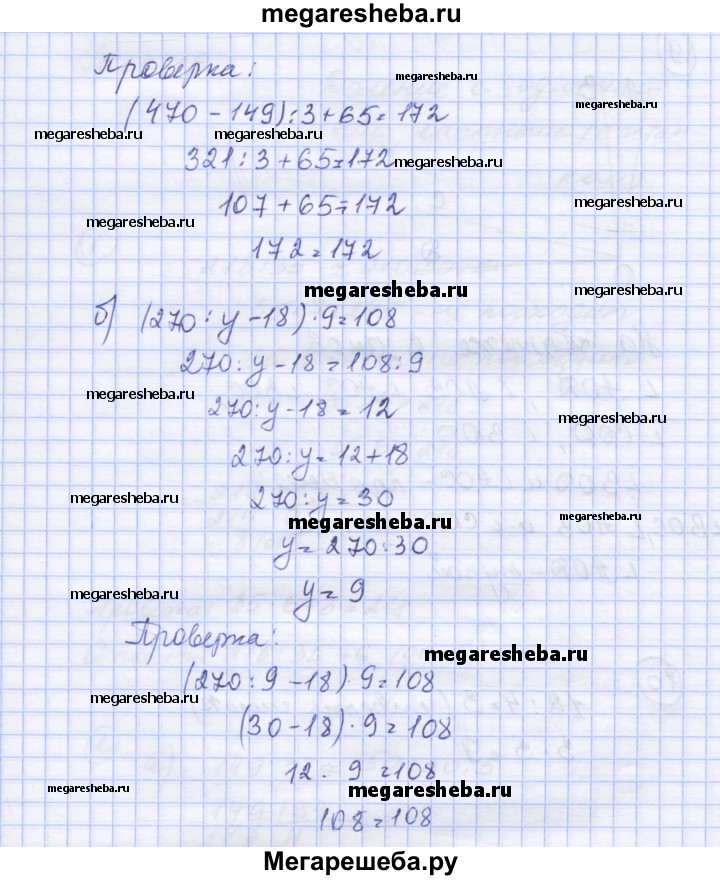 megaresheba.ru
Проверка:
megaresheba.ru
megaresheba.ru
(470 - 149) : 3 + 65 = 172
megaresheba.ru megaresheba.ru
321 : 3 + 65 = 172 megaresheba.ru
107 + 65 = 172
megaresheba.ru megaresheba.ru
172 = 172
megaresheba.ru megaresheba.ru
б) (270 : y - 18) · 9 = 108
270 : y - 18 = 108 : 9
megaresheba.ru
270 : y - 18 = 12
megaresheba.ru
270 : y = 12 + 18
megaresheba.ru 270 : y = 30
megaresheba.ru megaresheba.ru
y = 270 : 30
megaresheba.ru y = 9
Проверка:
megaresheba.ru
(270 : 9 - 18) · 9 = 108
megaresheba.ru
(30 - 18) · 9 = 108
12 · 9 = 108
megaresheba.ru megaresheba.ru
108 = 108
Мегарешеба.ру